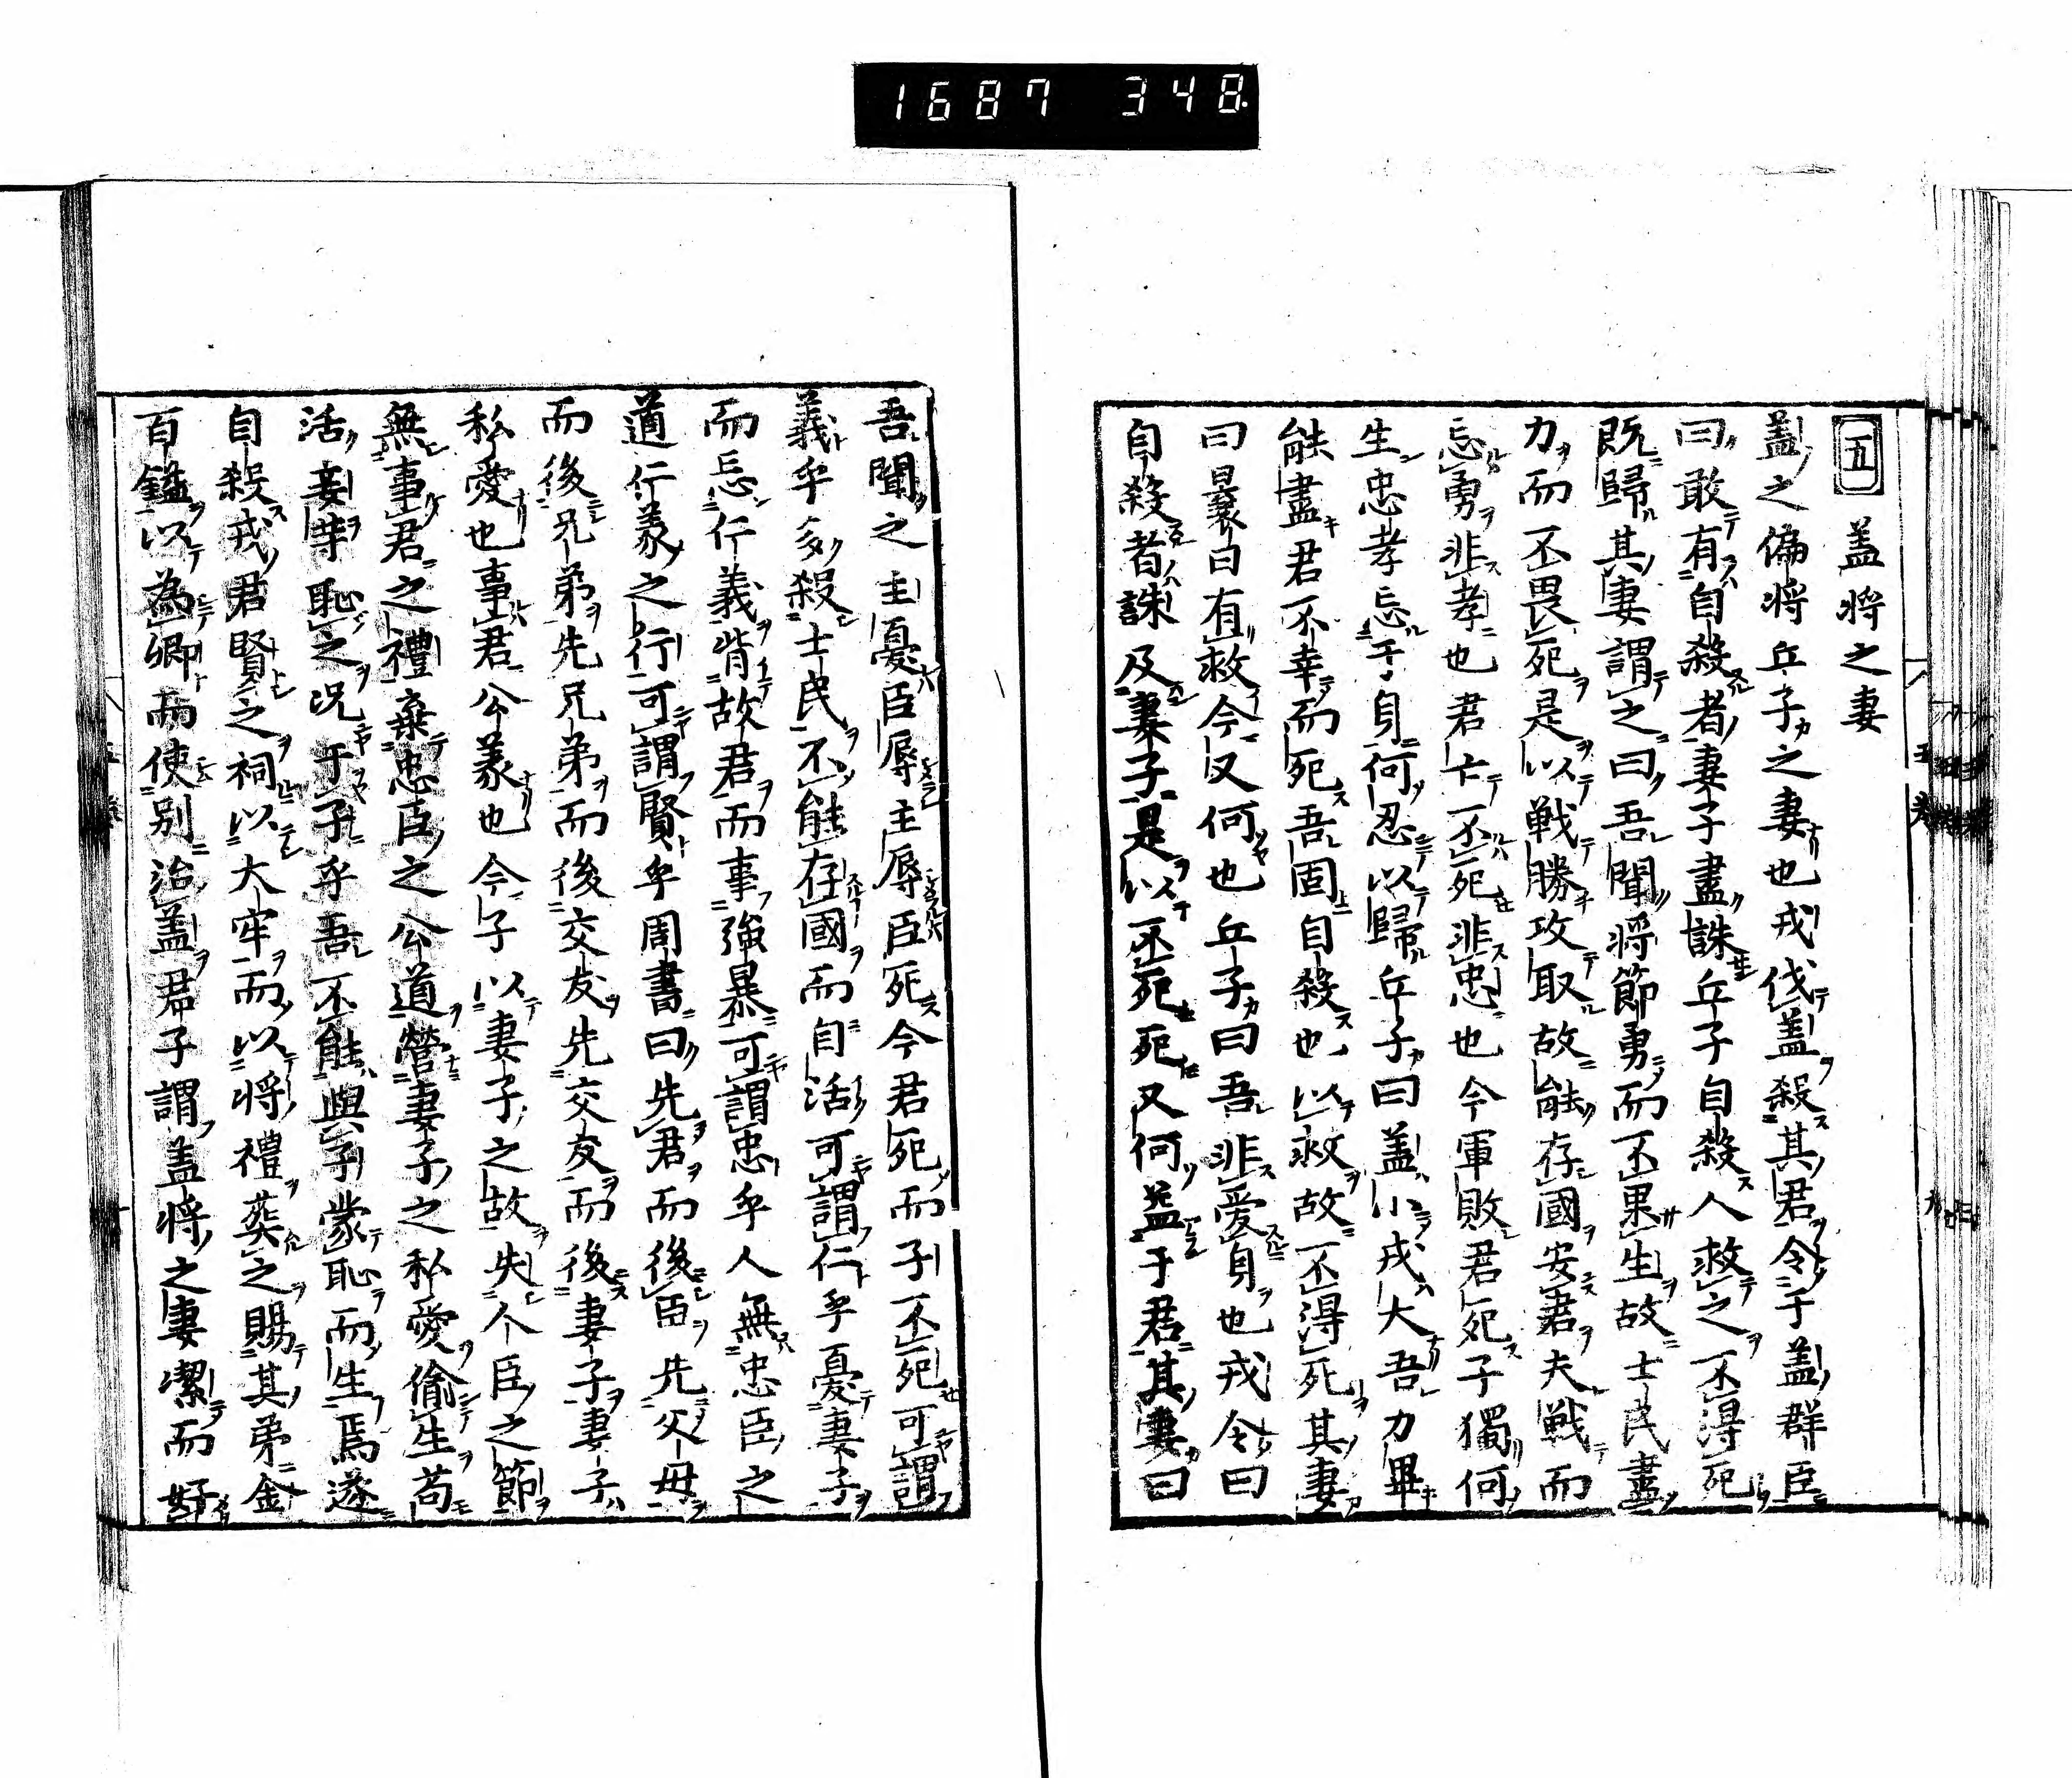 1687 348.
五 盖將之妻
盖之偏將丘子之妻也戎伐盖殺其君令于盖群臣
曰敢有自殺者妻子盡誅丘子自殺人救之不得死
既歸其妻謂之曰吾聞將節勇而不果生故士民盡
力而不畏死是以戦勝攻取故能存國安君夫戦而
忘勇非孝也君亡不死非忠也今軍敗君死子獨何
生忠孝忘于身何忍以歸丘子曰盖小戎大吾力畢
能盡君不幸而死吾固自殺也以救故不得死其妻
曰曩日有救今又何也丘子曰吾非愛身也戎令曰
自殺者誅及妻子是以不死死又何益于君其妻曰
吾聞之主憂臣辱主辱臣死今君死而子不死可謂
義乎多殺士民不能存國而自活可謂仁乎憂妻子
而忘仁義背故君而事強暴可謂忠乎人無忠臣之
道仁義之行可謂賢乎周書曰先君而後臣先父母
而後兄弟先兄弟而後交友先交友而後妻子妻子
私愛也事君公義也今子以妻子之故失人臣之節
無事君之禮棄忠臣之公道營妻子之私愛偷生苟
活妾等恥之况于子乎吾不能與子蒙恥而生焉遂
自殺戎君賢之祠以大牢而以將禮葬之賜其弟金
百鎰以為卿而使别治盖君子謂盖將之妻潔而好